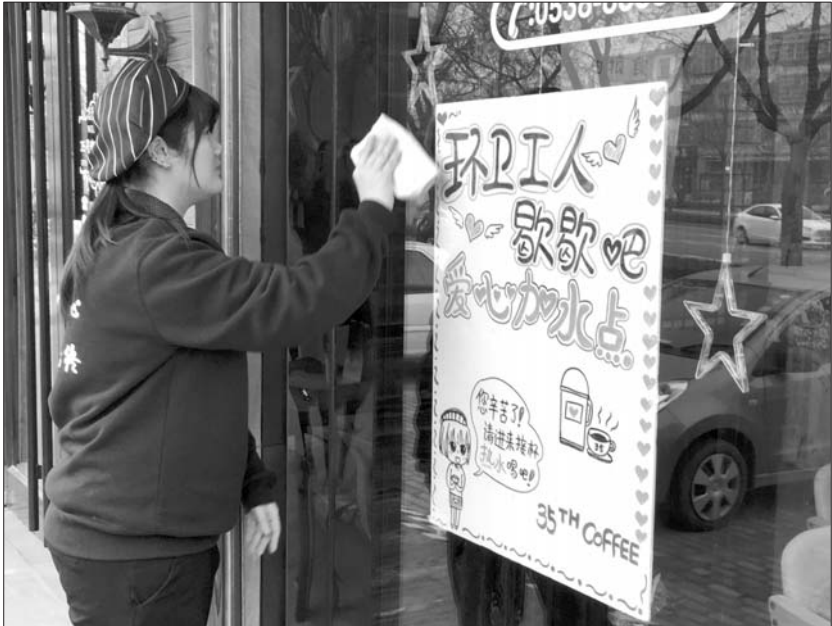 环卫工人
歇歇吧
爱心加水点
您辛苦了!
请进来接杯
热水喝吧!
35
35TH COFFEE